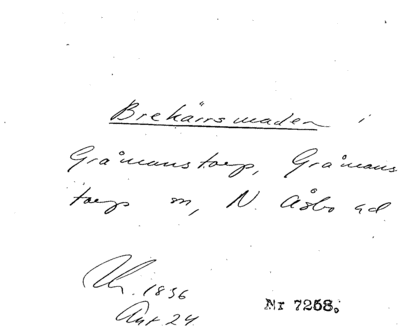 Brekärrsmaden i
Gråmanstorp, Gråmans
torps sn, N. Åsbo hd
1836
Akt 24
Nr 7258.